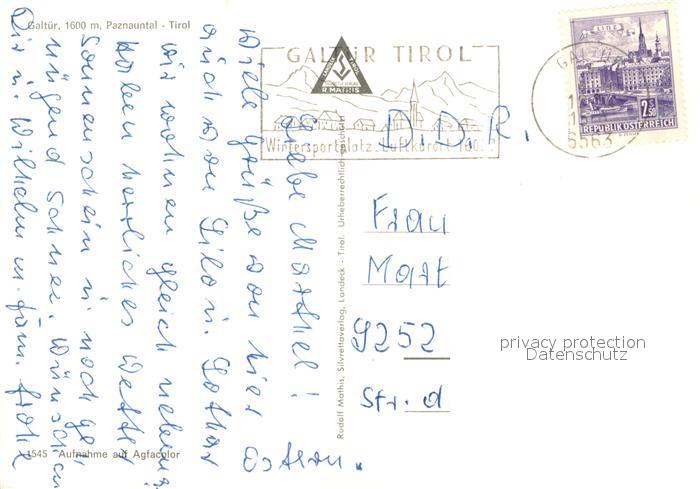 Galtür, 1600 m, Paznauntal - Tirol
GALTÜR TIROL
R. MATHIS
Wintersportplatz Luftkurort 1600
LINZ
2.50
REPUBLIK ÖSTERREICH
6563
D.D.R.
Frau
Mart
9252
Str. d
Liebe Marthel!
Viele Grüße von hier
auch von Gila u. Lothar
wir wohnen gleich nebenan
haben herrliches Wetter
Sonnenschein u. noch ge-
nügend Schnee. Wünschen
Dir u. Wilhelm u. Fam. frohe
Ostern.
Rudolf Mathis, Silvrettaverlag, Landeck - Tirol. Urheberrechtlich geschützt
1545 Aufnahme auf Agfacolor
privacy protection
Datenschutz